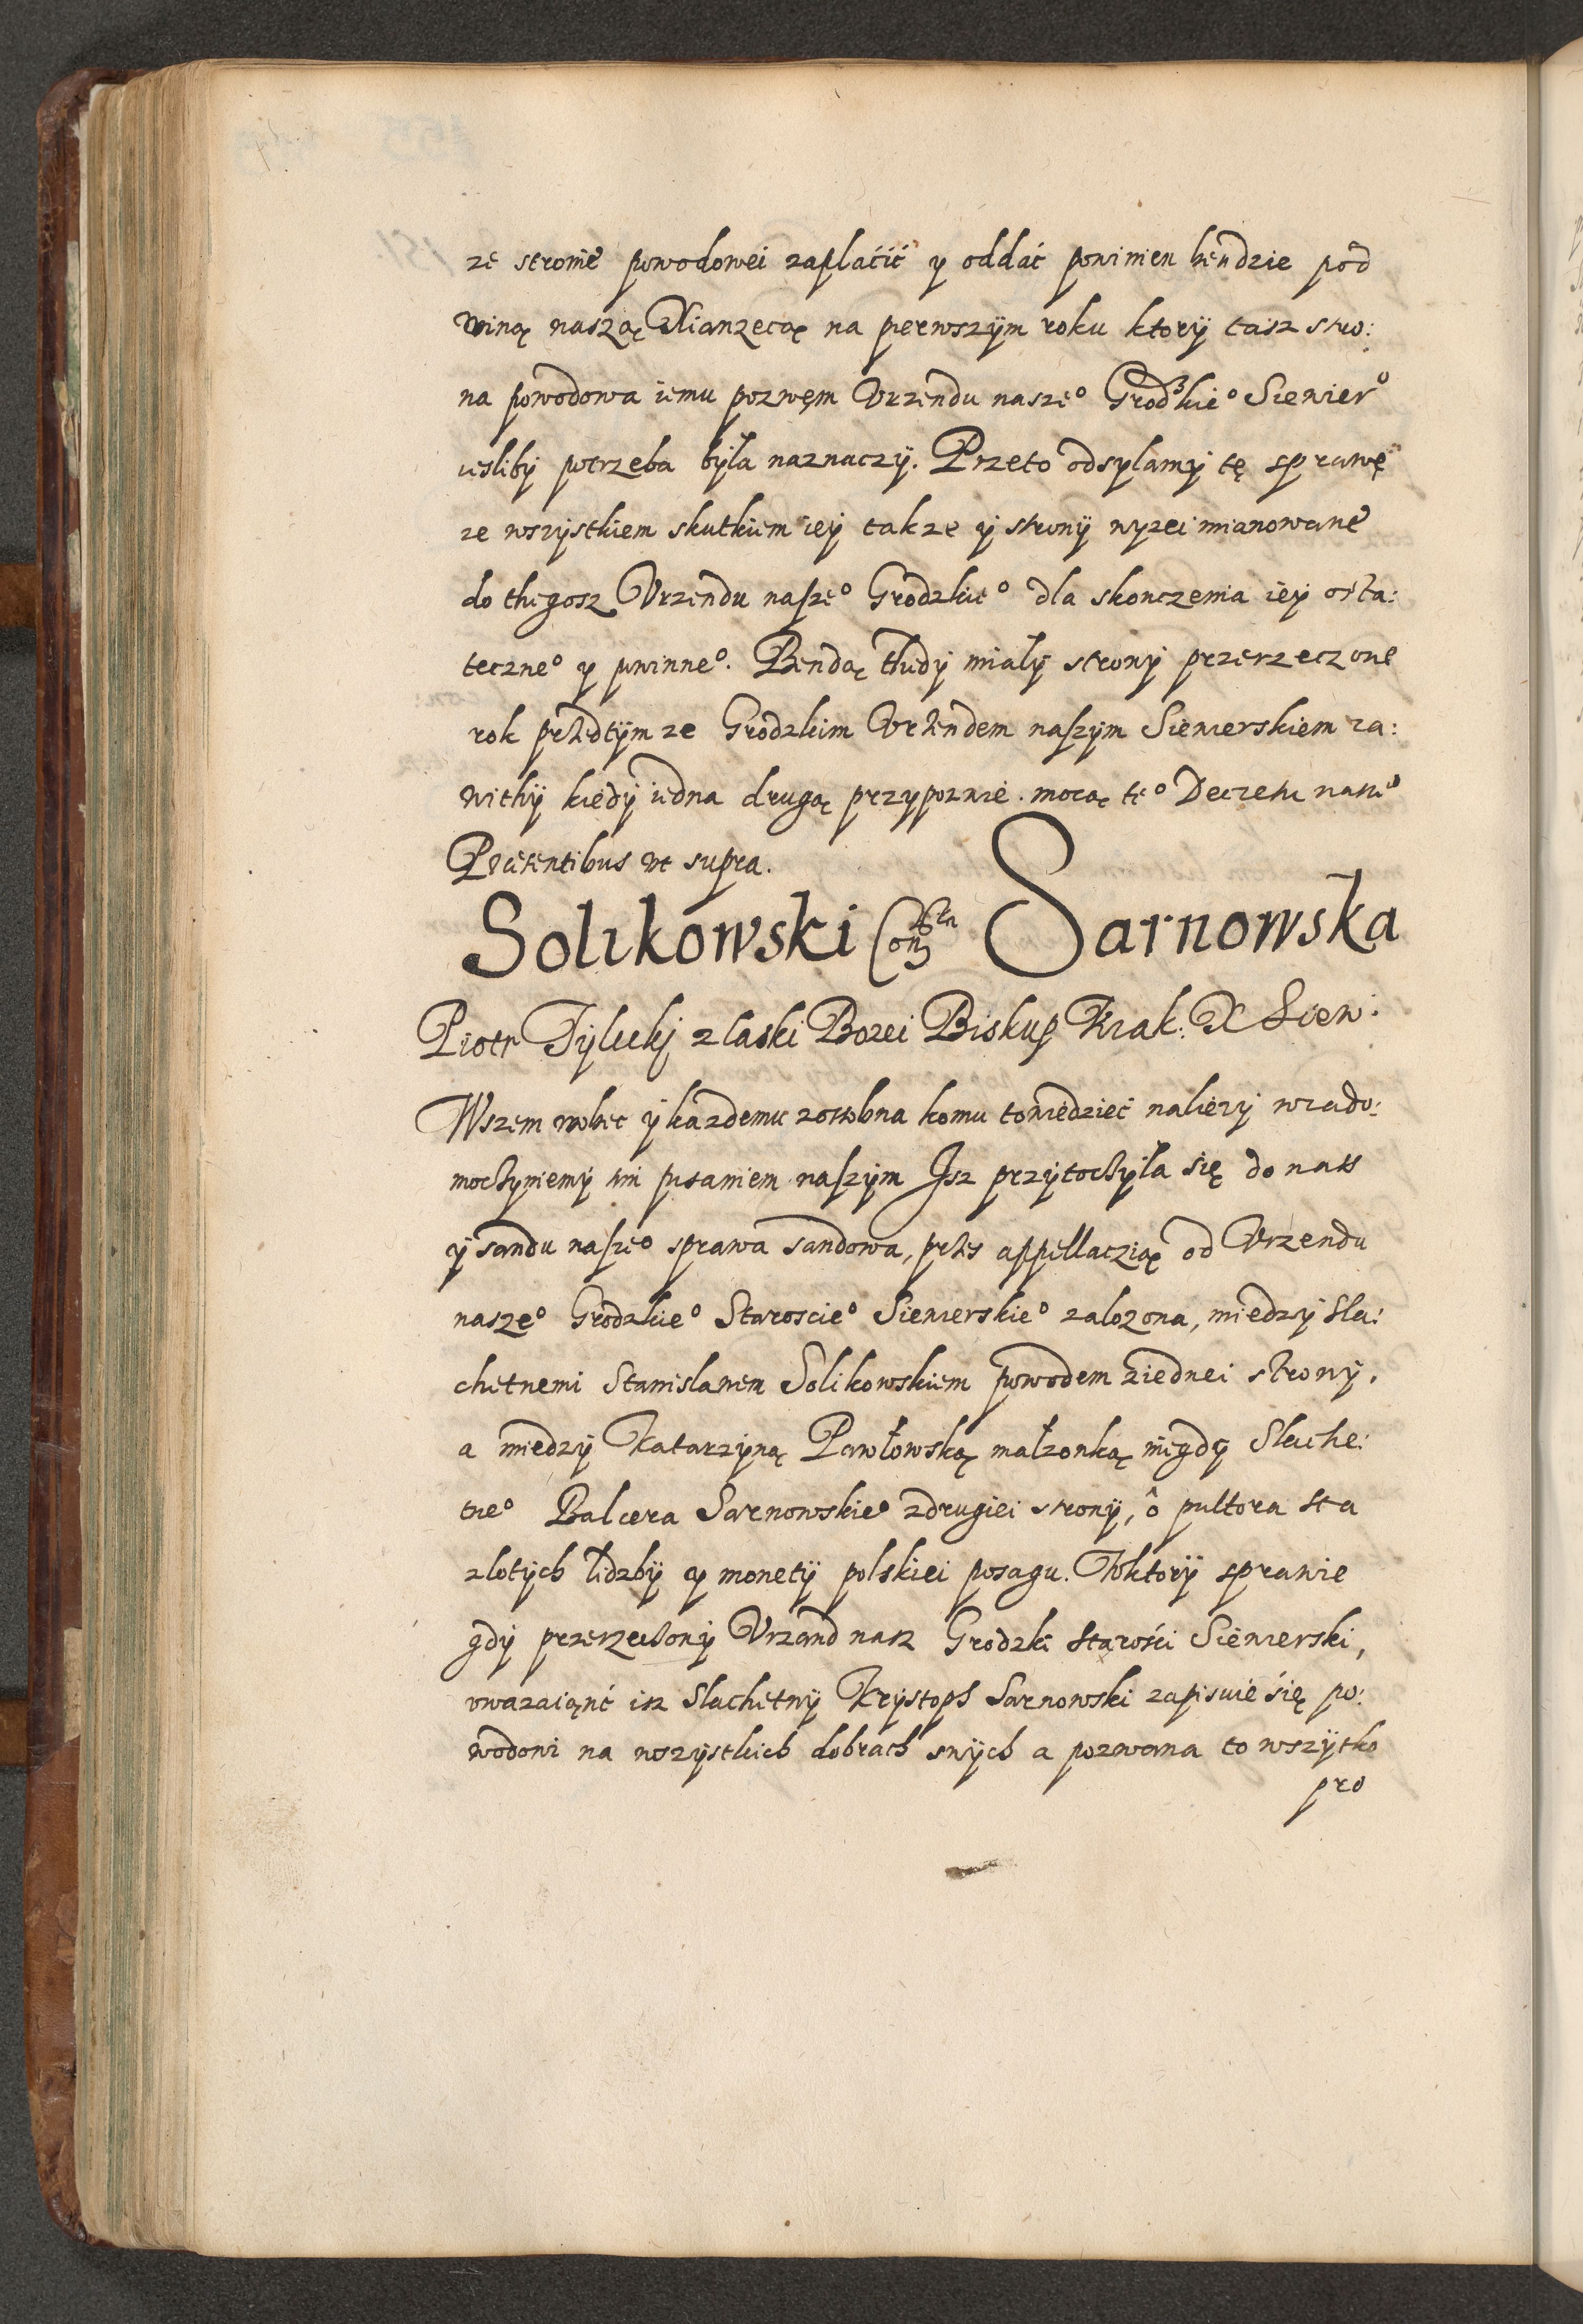 ze stronie powodowei zapłaćić y oddać powinien bendzie pod
winą naszą Xianzecą na pierwszÿm roku ktorÿ tasz stro:
na powodowa iemu pozwęm Vrzendu nasze° Grodzkie° Siewier°
iesliby potrzeba była naznaczÿ. Przeto odsyłamÿ tę sprawę
ze wszystkiem skutkiem ieÿ takze ÿ stronÿ wyzei mianowane
do thegosz Vrzendu nasze° Grodzkie° dla skonczenia ieÿ osta:
teczne° y pwinne°. Bendą thedy miałÿ stronÿ przerzeczone
rok przedtÿm ze Grodzkim Vrzendem naszÿm Siewierskiem za:
withÿ kiedÿ iedna drugą przypozwie. mocą te° Decretu nasze°
Præsentibus ut supra.
Solikowski Con Sarnowska
Piotr Tÿlicki z łaski Bozei Biskup Krak: X Siew:
Wszem wobec ÿ kazdemu zosobna komu to wiedzieć nalezÿ wiado:
mo czyniemÿ tim pisaniem naszÿm Isz przÿtoczÿła się do nass
ÿ sandu nasze° sprawa sandowa, przes appellaczią od Vrzendu
nasze° Grodzkie° Staroscie° Siewierskie° załozona, miedzÿ Sla:
chetnemi Stanislawem Solikowskiem powodem ziednei stronÿ,
a miedzÿ Katarzÿną Pawłowską małzonką niegdÿ Slache:
tne° Balcera Sarnowskie° zdrugiei stronÿ, ô pułtora sta
złotÿch lidzbÿ ÿ monetÿ polskiei posagu. W ktorÿ sprawie
gdÿ przerzeczonÿ Vrzand nasz Grodzki Starości Siewierski,
uwazaiąnć isz Slachetnÿ Krÿstoph Sarnowski zapisuie się po:
wodowi na wszÿstkich dobrach swÿch a pozwana to wszÿtko
pro